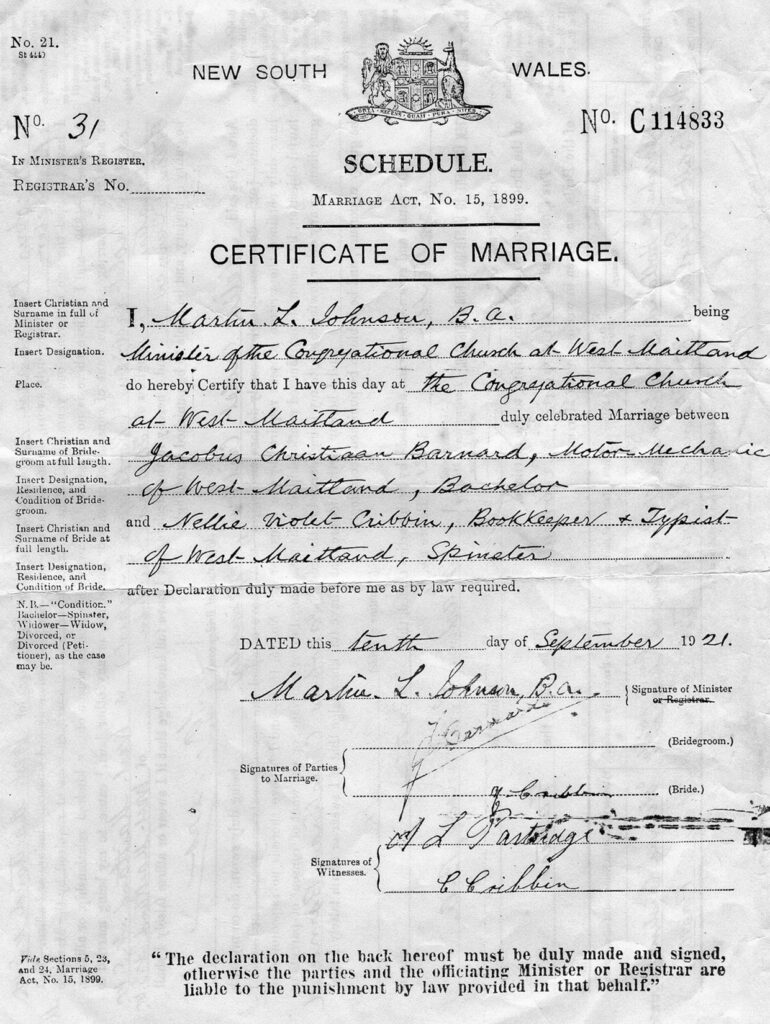 No. 21.
St 4447
NEW SOUTH WALES.
No. 31
No. C 114833
IN MINISTER'S REGISTER,
REGISTRAR'S No.
SCHEDULE.
MARRIAGE ACT, No. 15, 1899.
CERTIFICATE OF MARRIAGE.
Insert Christian and
Surname in full of
Minister or
Registrar.
I, Martin L. Johnson, B.A. being
Insert Designation.
Minister of the Congregational Church at West Maitland
Place.
do hereby Certify that I have this day at the Congregational Church
at West Maitland duly celebrated Marriage between
Insert Christian and
Surname of Bride-
groom at full length.
Jacobus Christiaan Barnard, Motor Mechanic
Insert Designation,
Residence, and
Condition of Bride-
groom.
of West Maitland, Bachelor
Insert Christian and
Surname of Bride at
full length.
and Nellie Violet Cribbin, Bookkeeper & Typist
Insert Designation,
Residence, and
Condition of Bride.
of West Maitland, Spinster
after Declaration duly made before me as by law required.
N.B.—"Condition."
Bachelor—Spinster,
Widower—Widow,
Divorced, or
Divorced (Peti-
tioner), as the case
may be.
DATED this tenth day of September 1921.
Martin L. Johnson, B.A. Signature of Minister
or Registrar.
J Barnard
(Bridegroom.)
Signatures of Parties
to Marriage.
Cribbin (Bride.)
L Partridge
Signatures of
Witnesses.
C Cribbin
Vide Sections 5, 23,
and 24, Marriage
Act, No. 15, 1899.
"The declaration on the back hereof must be duly made and signed,
otherwise the parties and the officiating Minister or Registrar are
liable to the punishment by law provided in that behalf."